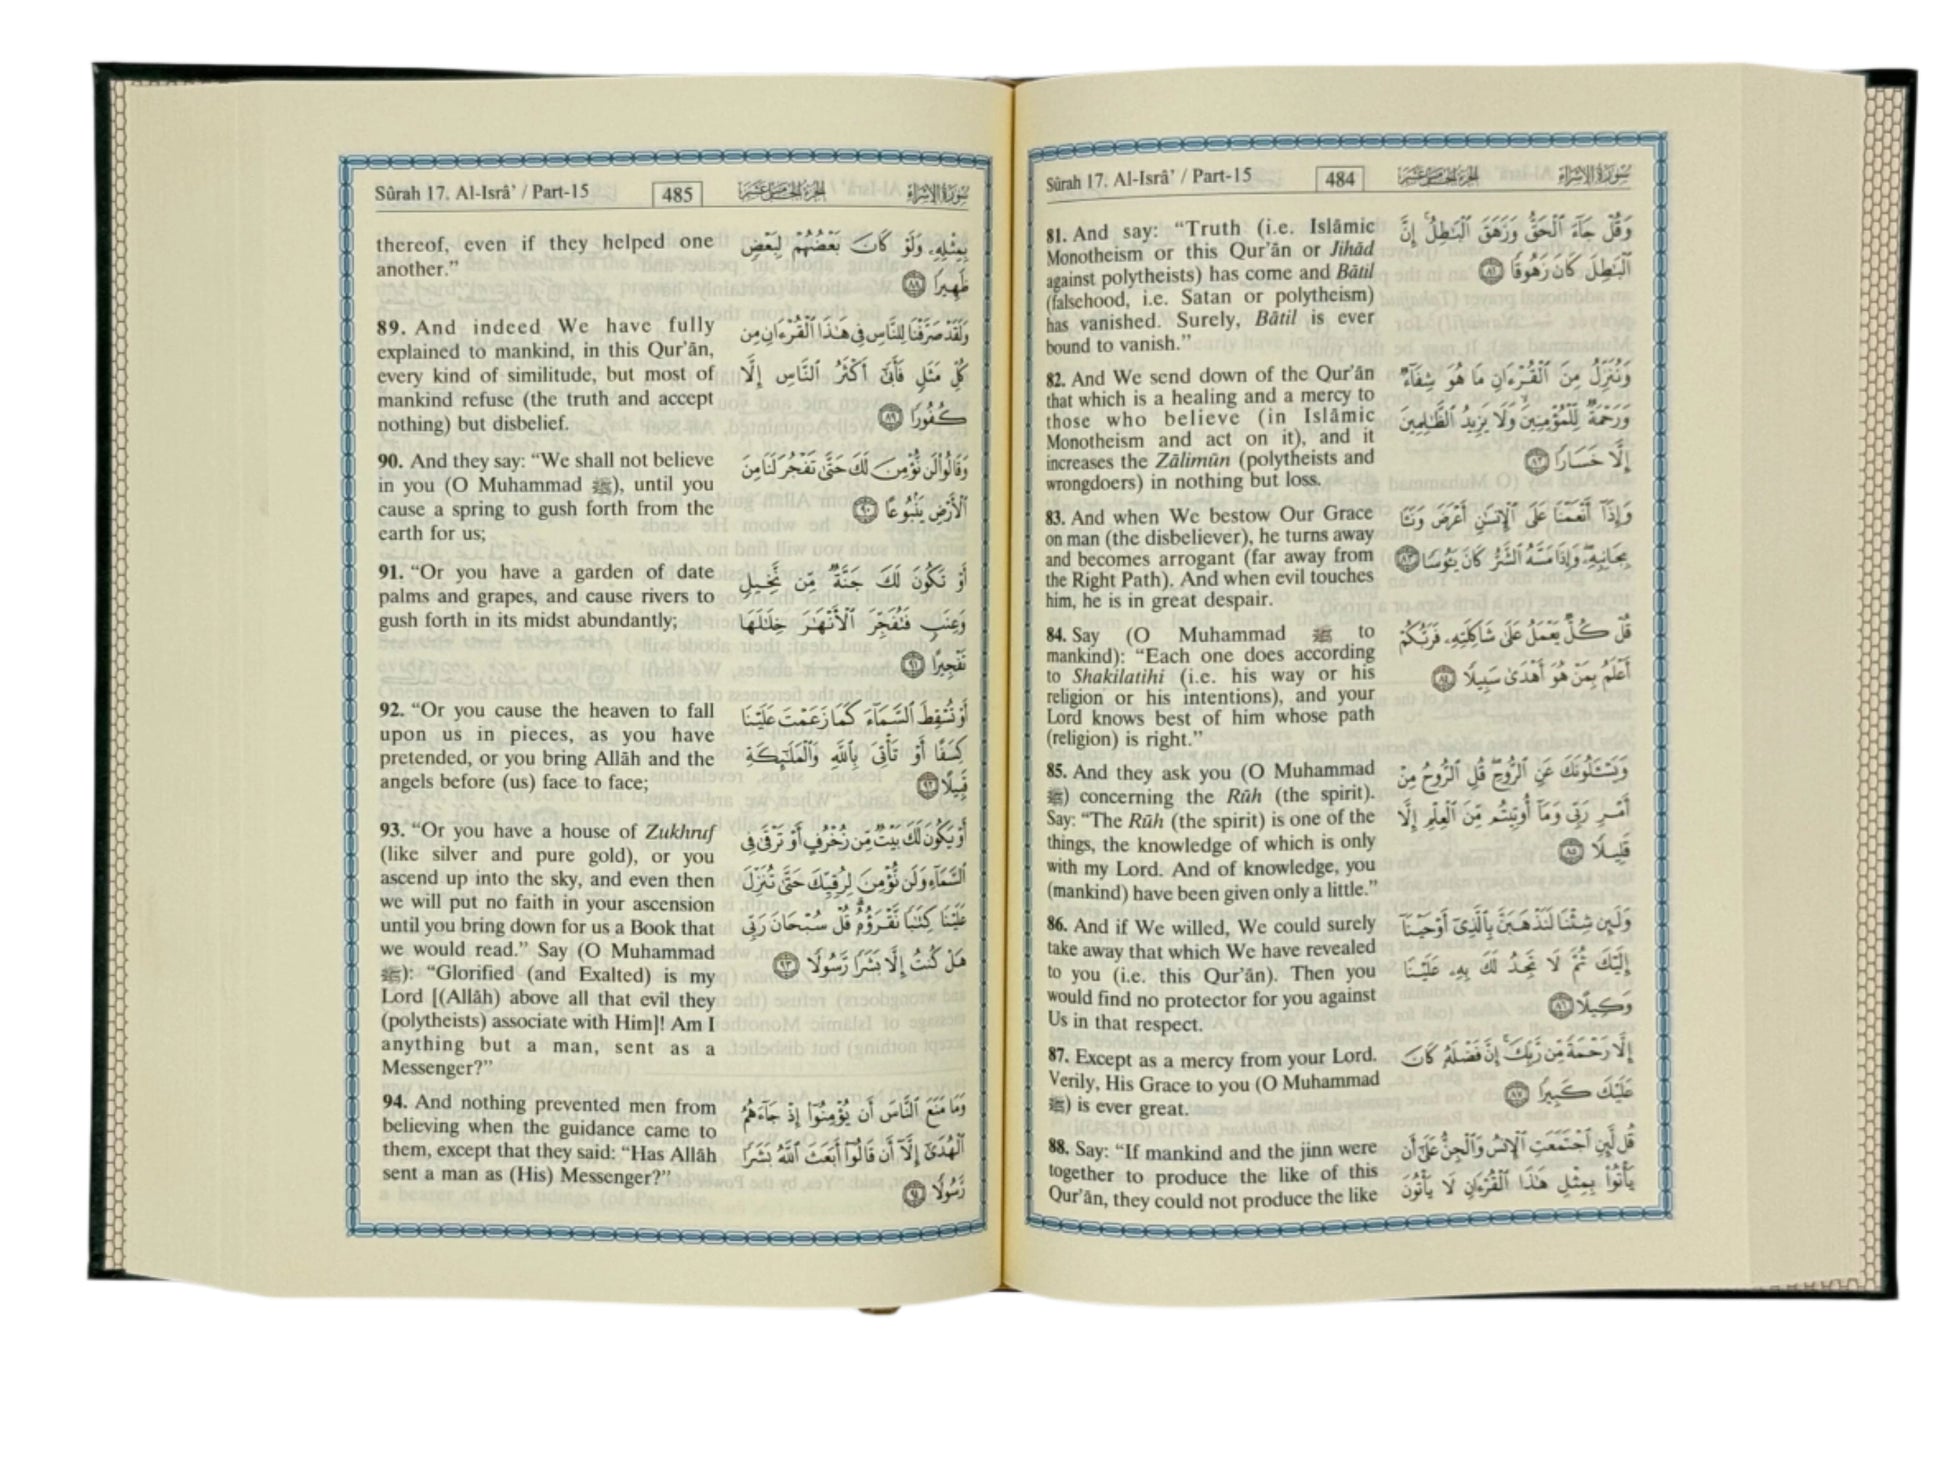 Sûrah 17. Al-Isrâ’ / Part-15
484
الجزء الخامس عشر
سورة الإسراء
81. And say: “Truth (i.e. Islâmic
Monotheism or this Qur’ân or Jihâd
against polytheists) has come and Bâtil
(falsehood, i.e. Satan or polytheism)
has vanished. Surely, Bâtil is ever
bound to vanish.”
82. And We send down of the Qur’ân
that which is a healing and a mercy to
those who believe (in Islâmic
Monotheism and act on it), and it
increases the Zâlimûn (polytheists and
wrongdoers) in nothing but loss.
83. And when We bestow Our Grace
on man (the disbeliever), he turns away
and becomes arrogant (far away from
the Right Path). And when evil touches
him, he is in great despair.
84. Say (O Muhammad ﷺ to
mankind): “Each one does according
to Shakilatihi (i.e. his way or his
religion or his intentions), and your
Lord knows best of him whose path
(religion) is right.”
85. And they ask you (O Muhammad
ﷺ) concerning the Rûh (the spirit).
Say: “The Rûh (the spirit) is one of the
things, the knowledge of which is only
with my Lord. And of knowledge, you
(mankind) have been given only a little.”
86. And if We willed, We could surely
take away that which We have revealed
to you (i.e. this Qur’ân). Then you
would find no protector for you against
Us in that respect.
87. Except as a mercy from your Lord.
Verily, His Grace to you (O Muhammad
ﷺ) is ever great.
88. Say: “If mankind and the jinn were
together to produce the like of this
Qur’ân, they could not produce the like
وَقُلْ جَآءَ ٱلْحَقُّ وَزَهَقَ ٱلْبَٰطِلُ ۚ إِنَّ
ٱلْبَٰطِلَ كَانَ زَهُوقًا ٨١
وَنُنَزِّلُ مِنَ ٱلْقُرْءَانِ مَا هُوَ شِفَآءٌ
وَرَحْمَةٌ لِّلْمُؤْمِنِينَ ۙ وَلَا يَزِيدُ ٱلظَّٰلِمِينَ
إِلَّا خَسَارًا ٨٢
وَإِذَآ أَنْعَمْنَا عَلَى ٱلْإِنسَٰنِ أَعْرَضَ وَنَـَٔا
بِجَانِبِهِۦ ۖ وَإِذَا مَسَّهُ ٱلشَّرُّ كَانَ يَـُٔوسًا ٨٣
قُلْ كُلٌّ يَعْمَلُ عَلَىٰ شَاكِلَتِهِۦ فَرَبُّكُمْ
أَعْلَمُ بِمَنْ هُوَ أَهْدَىٰ سَبِيلًا ٨٤
وَيَسْـَٔلُونَكَ عَنِ ٱلرُّوحِ ۖ قُلِ ٱلرُّوحُ مِنْ
أَمْرِ رَبِّى وَمَآ أُوتِيتُم مِّنَ ٱلْعِلْمِ إِلَّا
قَلِيلًا ٨٥
وَلَئِن شِئْنَا لَنَذْهَبَنَّ بِٱلَّذِىٓ أَوْحَيْنَآ
إِلَيْكَ ثُمَّ لَا تَجِدُ لَكَ بِهِۦ عَلَيْنَا
وَكِيلًا ٨٦
إِلَّا رَحْمَةً مِّن رَّبِّكَ ۚ إِنَّ فَضْلَهُۥ كَانَ
عَلَيْكَ كَبِيرًا ٨٧
قُل لَّئِنِ ٱجْتَمَعَتِ ٱلْإِنسُ وَٱلْجِنُّ عَلَىٰٓ أَن
يَأْتُوا۟ بِمِثْلِ هَٰذَا ٱلْقُرْءَانِ لَا يَأْتُونَ
Sûrah 17. Al-Isrâ’ / Part-15
485
الجزء الخامس عشر
سورة الإسراء
thereof, even if they helped one
another.”
89. And indeed We have fully
explained to mankind, in this Qur’ân,
every kind of similitude, but most of
mankind refuse (the truth and accept
nothing) but disbelief.
90. And they say: “We shall not believe
in you (O Muhammad ﷺ), until you
cause a spring to gush forth from the
earth for us;
91. “Or you have a garden of date
palms and grapes, and cause rivers to
gush forth in its midst abundantly;
92. “Or you cause the heaven to fall
upon us in pieces, as you have
pretended, or you bring Allâh and the
angels before (us) face to face;
93. “Or you have a house of Zukhruf
(like silver and pure gold), or you
ascend up into the sky, and even then
we will put no faith in your ascension
until you bring down for us a Book that
we would read.” Say (O Muhammad
ﷺ): “Glorified (and Exalted) is my
Lord [(Allâh) above all that evil they
(polytheists) associate with Him]! Am I
anything but a man, sent as a
Messenger?”
94. And nothing prevented men from
believing when the guidance came to
them, except that they said: “Has Allâh
sent a man as (His) Messenger?”
بِمِثْلِهِۦ وَلَوْ كَانَ بَعْضُهُمْ لِبَعْضٍ
ظَهِيرًا ٨٨
وَلَقَدْ صَرَّفْنَا لِلنَّاسِ فِى هَٰذَا ٱلْقُرْءَانِ مِن
كُلِّ مَثَلٍ فَأَبَىٰٓ أَكْثَرُ ٱلنَّاسِ إِلَّا
كُفُورًا ٨٩
وَقَالُوا۟ لَن نُّؤْمِنَ لَكَ حَتَّىٰ تَفْجُرَ لَنَا مِنَ
ٱلْأَرْضِ يَنۢبُوعًا ٩٠
أَوْ تَكُونَ لَكَ جَنَّةٌ مِّن نَّخِيلٍ
وَعِنَبٍ فَتُفَجِّرَ ٱلْأَنْهَٰرَ خِلَٰلَهَا
تَفْجِيرًا ٩١
أَوْ تُسْقِطَ ٱلسَّمَآءَ كَمَا زَعَمْتَ عَلَيْنَا
كِسَفًا أَوْ تَأْتِىَ بِٱللَّهِ وَٱلْمَلَٰٓئِكَةِ
قَبِيلًا ٩٢
أَوْ يَكُونَ لَكَ بَيْتٌ مِّن زُخْرُفٍ أَوْ تَرْقَىٰ فِى
ٱلسَّمَآءِ وَلَن نُّؤْمِنَ لِرُقِيِّكَ حَتَّىٰ تُنَزِّلَ
عَلَيْنَا كِتَٰبًا نَّقْرَؤُهُۥ ۗ قُلْ سُبْحَانَ رَبِّى
هَلْ كُنتُ إِلَّا بَشَرًا رَّسُولًا ٩٣
وَمَا مَنَعَ ٱلنَّاسَ أَن يُؤْمِنُوٓا۟ إِذْ جَآءَهُمُ
ٱلْهُدَىٰٓ إِلَّآ أَن قَالُوٓا۟ أَبَعَثَ ٱللَّهُ بَشَرًا
رَّسُولًا ٩٤